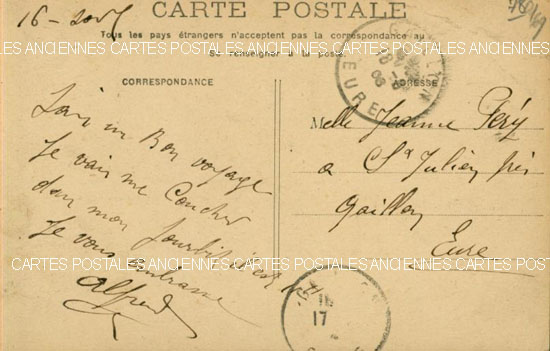 16
CARTE POSTALE
Tous les pays étrangers n'acceptent pas la correspondance au
CARTES POSTALES ANCIENNES CARTES POSTALES ANCIENNES CARTES POSTALES ANCIENNES
Se renseigner à la poste
CORRESPONDANCE
ADRESSE
EURE
un Bon voyage
Je vais me Coucher
dans mon
Je vous embrasse
Alfred
Melle Jeanne Péry
a St Julien près
Gaillon
Eure
CARTES POSTALES ANCIENNES CARTES POSTALES ANCIENNES CARTES POSTALES ANCIENNES
17